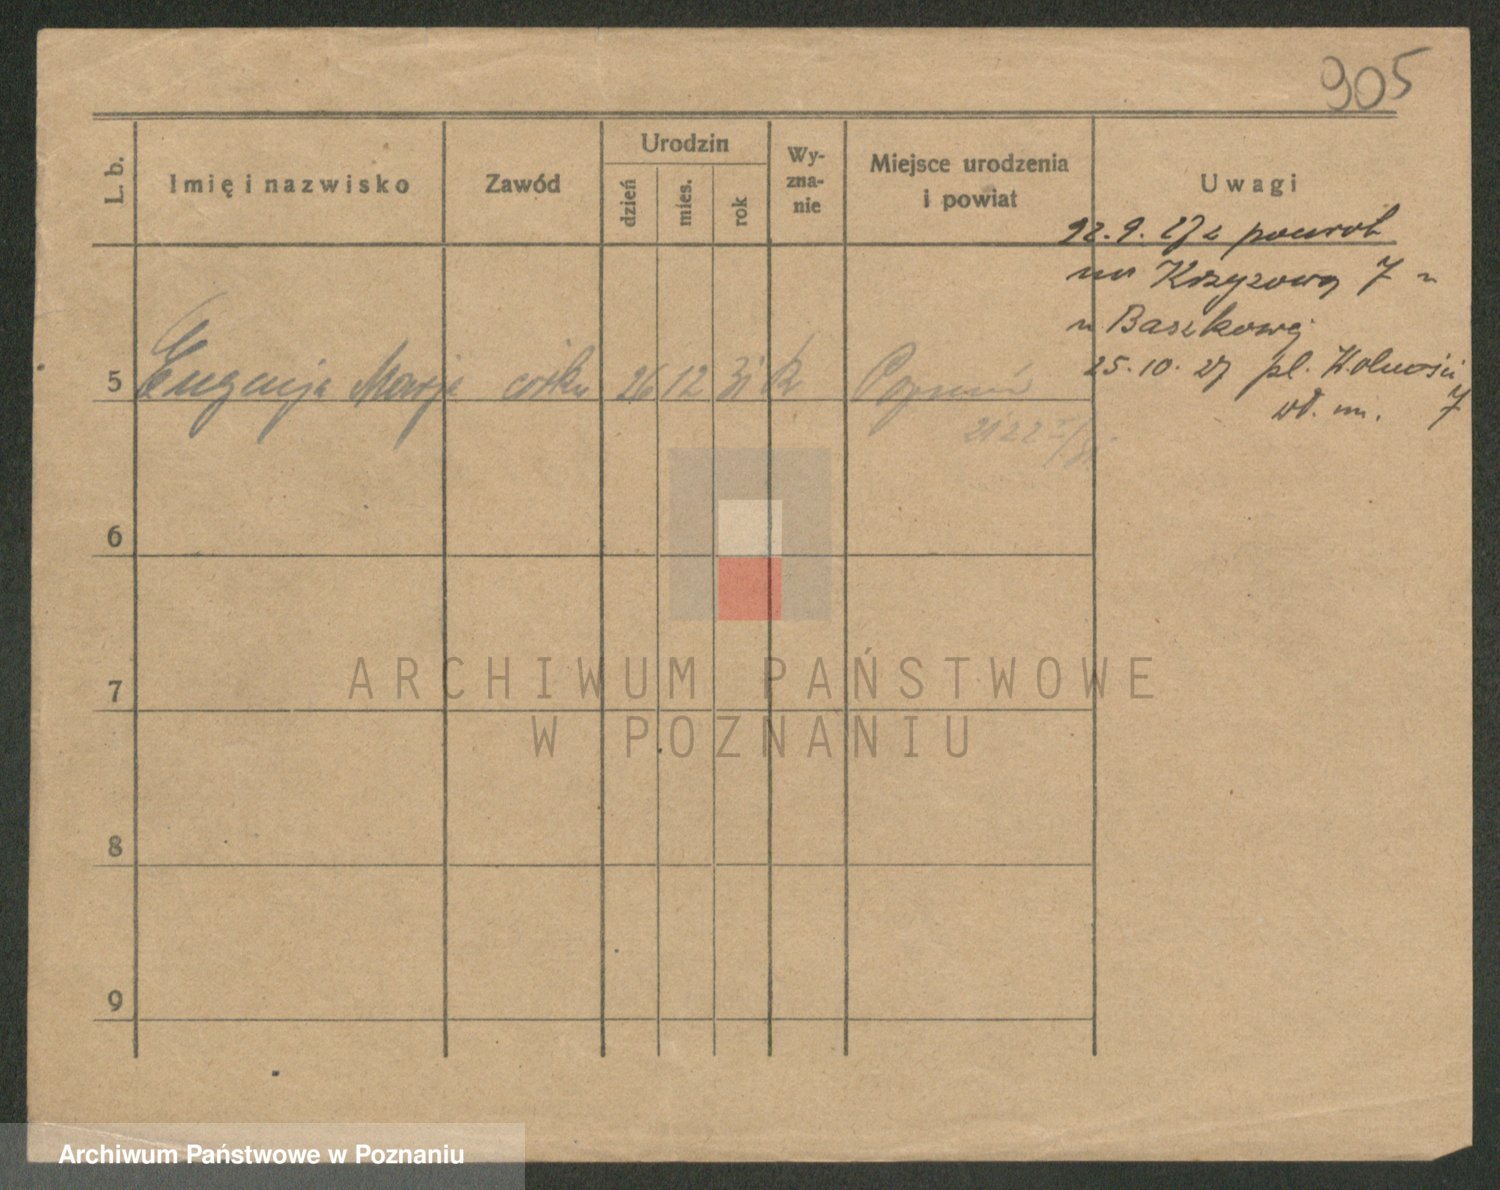 905
L. b.
Imię i nazwisko
Zawód
Urodzin
dzień
mies.
rok
Wy-
zna-
nie
Miejsce urodzenia
i powiat
Uwagi
9. 27 z powrot
na Krzyżową 7
u Baszkowej
25.10.27 pl. Wolności
7
5 Eugenja Marja córka 26 12 31 Poznań
6
7
8
9
ARCHIWUM PAŃSTWOWE
W POZNANIU
Archiwum Państwowe w Poznaniu